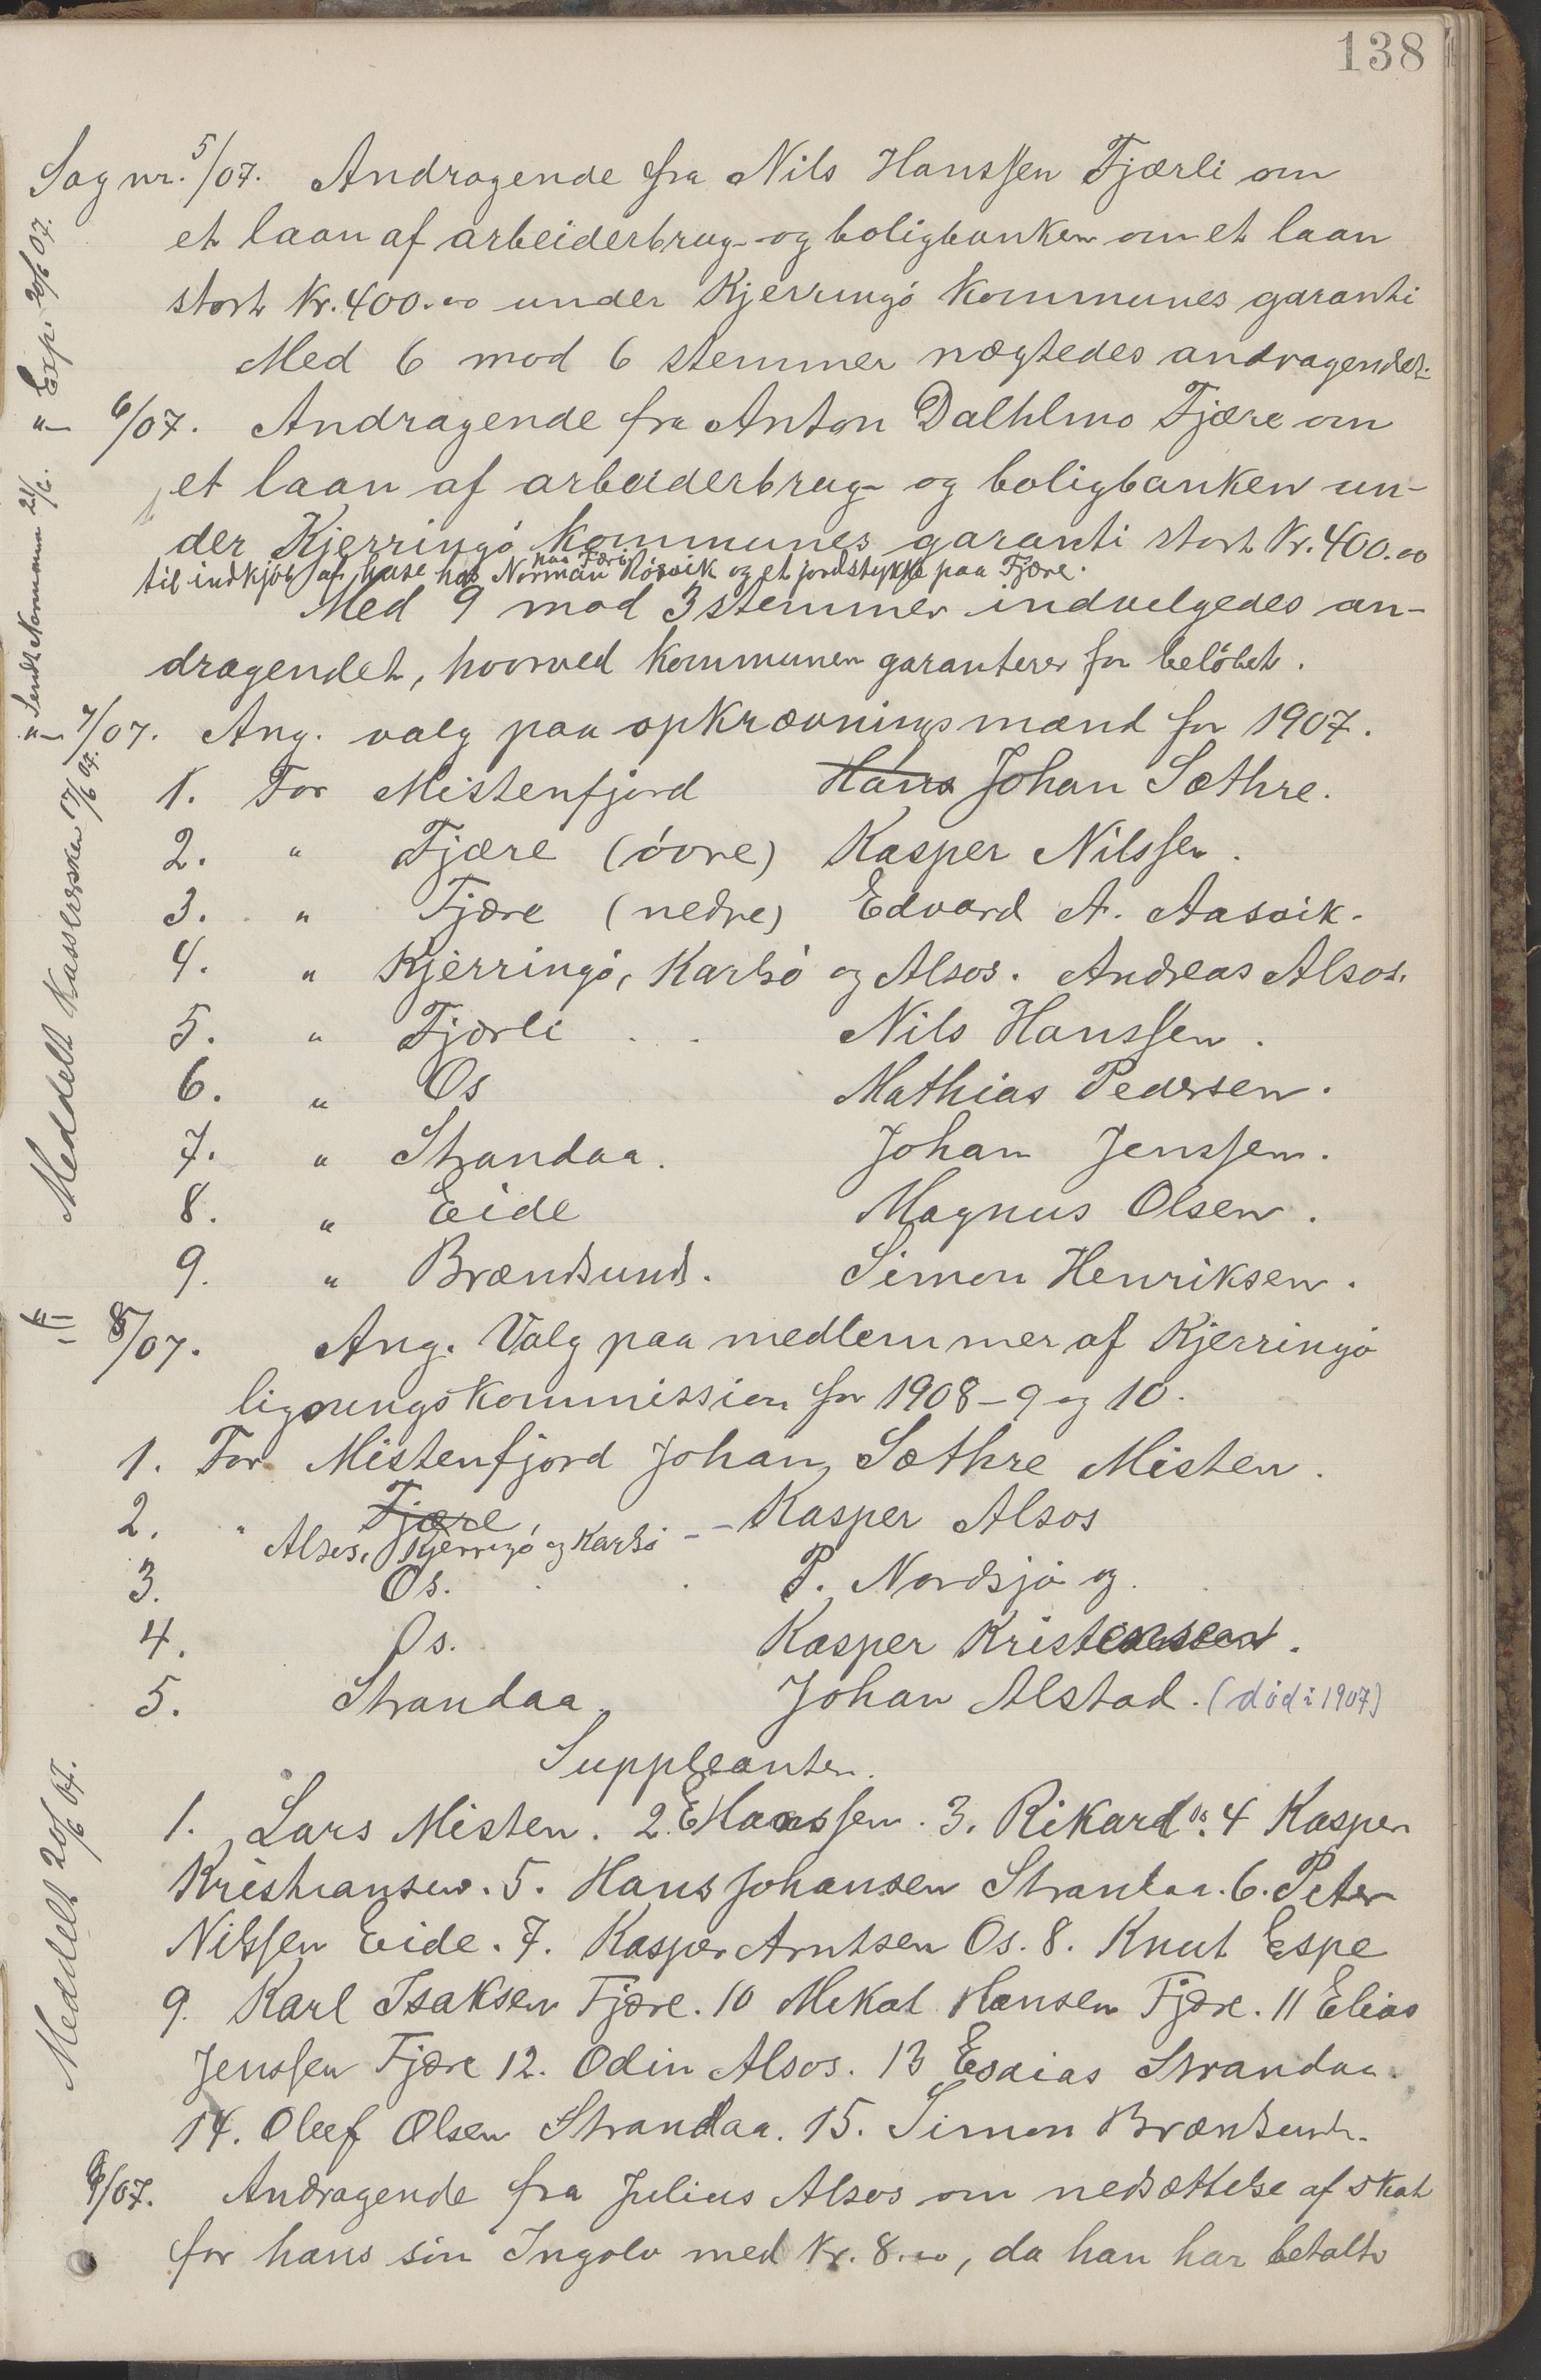 138
Sag nr. 5/07. Andragende fra Nils Hanssen Fjærli om
et laan af arbeiderbrug- og boligbanken om et laan
stort Kr. 400.00 under Kjerringø kommunes garanti
Med 6 mod 6 stemmer nægtedes andragendet.
Exp. 20/6 07.
"— 6/07. Andragende fra Anton Dalhlmo Fjære om
et laan af arbeiderbrug- og boligbanken un-
der Kjerringø kommunes garanti stort Kr. 400.00
paa Færi
til indkjøb af huse hos Norman Røsvik og et jordstykke paa Fjære.
Med 9 mod 3 stemmer indvelgedes an-
dragendet, hvorved kommunen garanterer for beløbet.
Sendt Normann 21/6.
"— 7/07. Ang. valg paa opkrævningsmænd for 1907.
1. For Mistenfjord Hans Johan Sæthre.
2. " Fjære (øvre) Kasper Nilssen.
3. " Fjære (nedre) Edvard A. Aasvik.
4. " Kjerringø, Karlsø og Alsos. Andreas Alsos.
5. " Fjærli . . Nils Hanssen.
6. " Os Mathias Pedersen.
7. " Strandaa. Johan Jenssen.
8. " Eide Magnus Olsen.
9. " Brændsund. Simon Henriksen.
Meddelt Kasserersken 17/6 07.
"— 8/07. Ang. Valg paa medlemmer af Kjerringø
ligningskommission for 1908-9 og 10.
1. For Mistenfjord Johan Sæthre Misten.
2. " Fjære, Kasper Alsos
Alsos, Kjerringø og Karlsø - -
3. Os. P. Nordsjø og
4. Os. Kasper Kristensen.
5. Strandaa. Johan Alstad. (død i 1907)
Suppleanter.
1. Lars Misten. 2. E Hanssen. 3. Rikard Os. 4 Kasper
Kristiansen. 5. Hans Johansen Strandaa. 6. Peter
Nilssen Eide. 7. Kasper Arntsen Os. 8. Knut Espe
9. Karl Isaksen Fjære. 10 Mikal Hansen Fjære. 11 Elias
Jenssen Fjære 12. Odin Alsos. 13 Esaias Strandaa.
14. Oluf Olsen Strandaa. 15. Simon Brændsund.
Meddelt 20/6 07.
9/07. Andragende fra Julius Alsos om nedsættelse af skat
for hans søn Ingolv med Kr. 8.00, da han har betalt